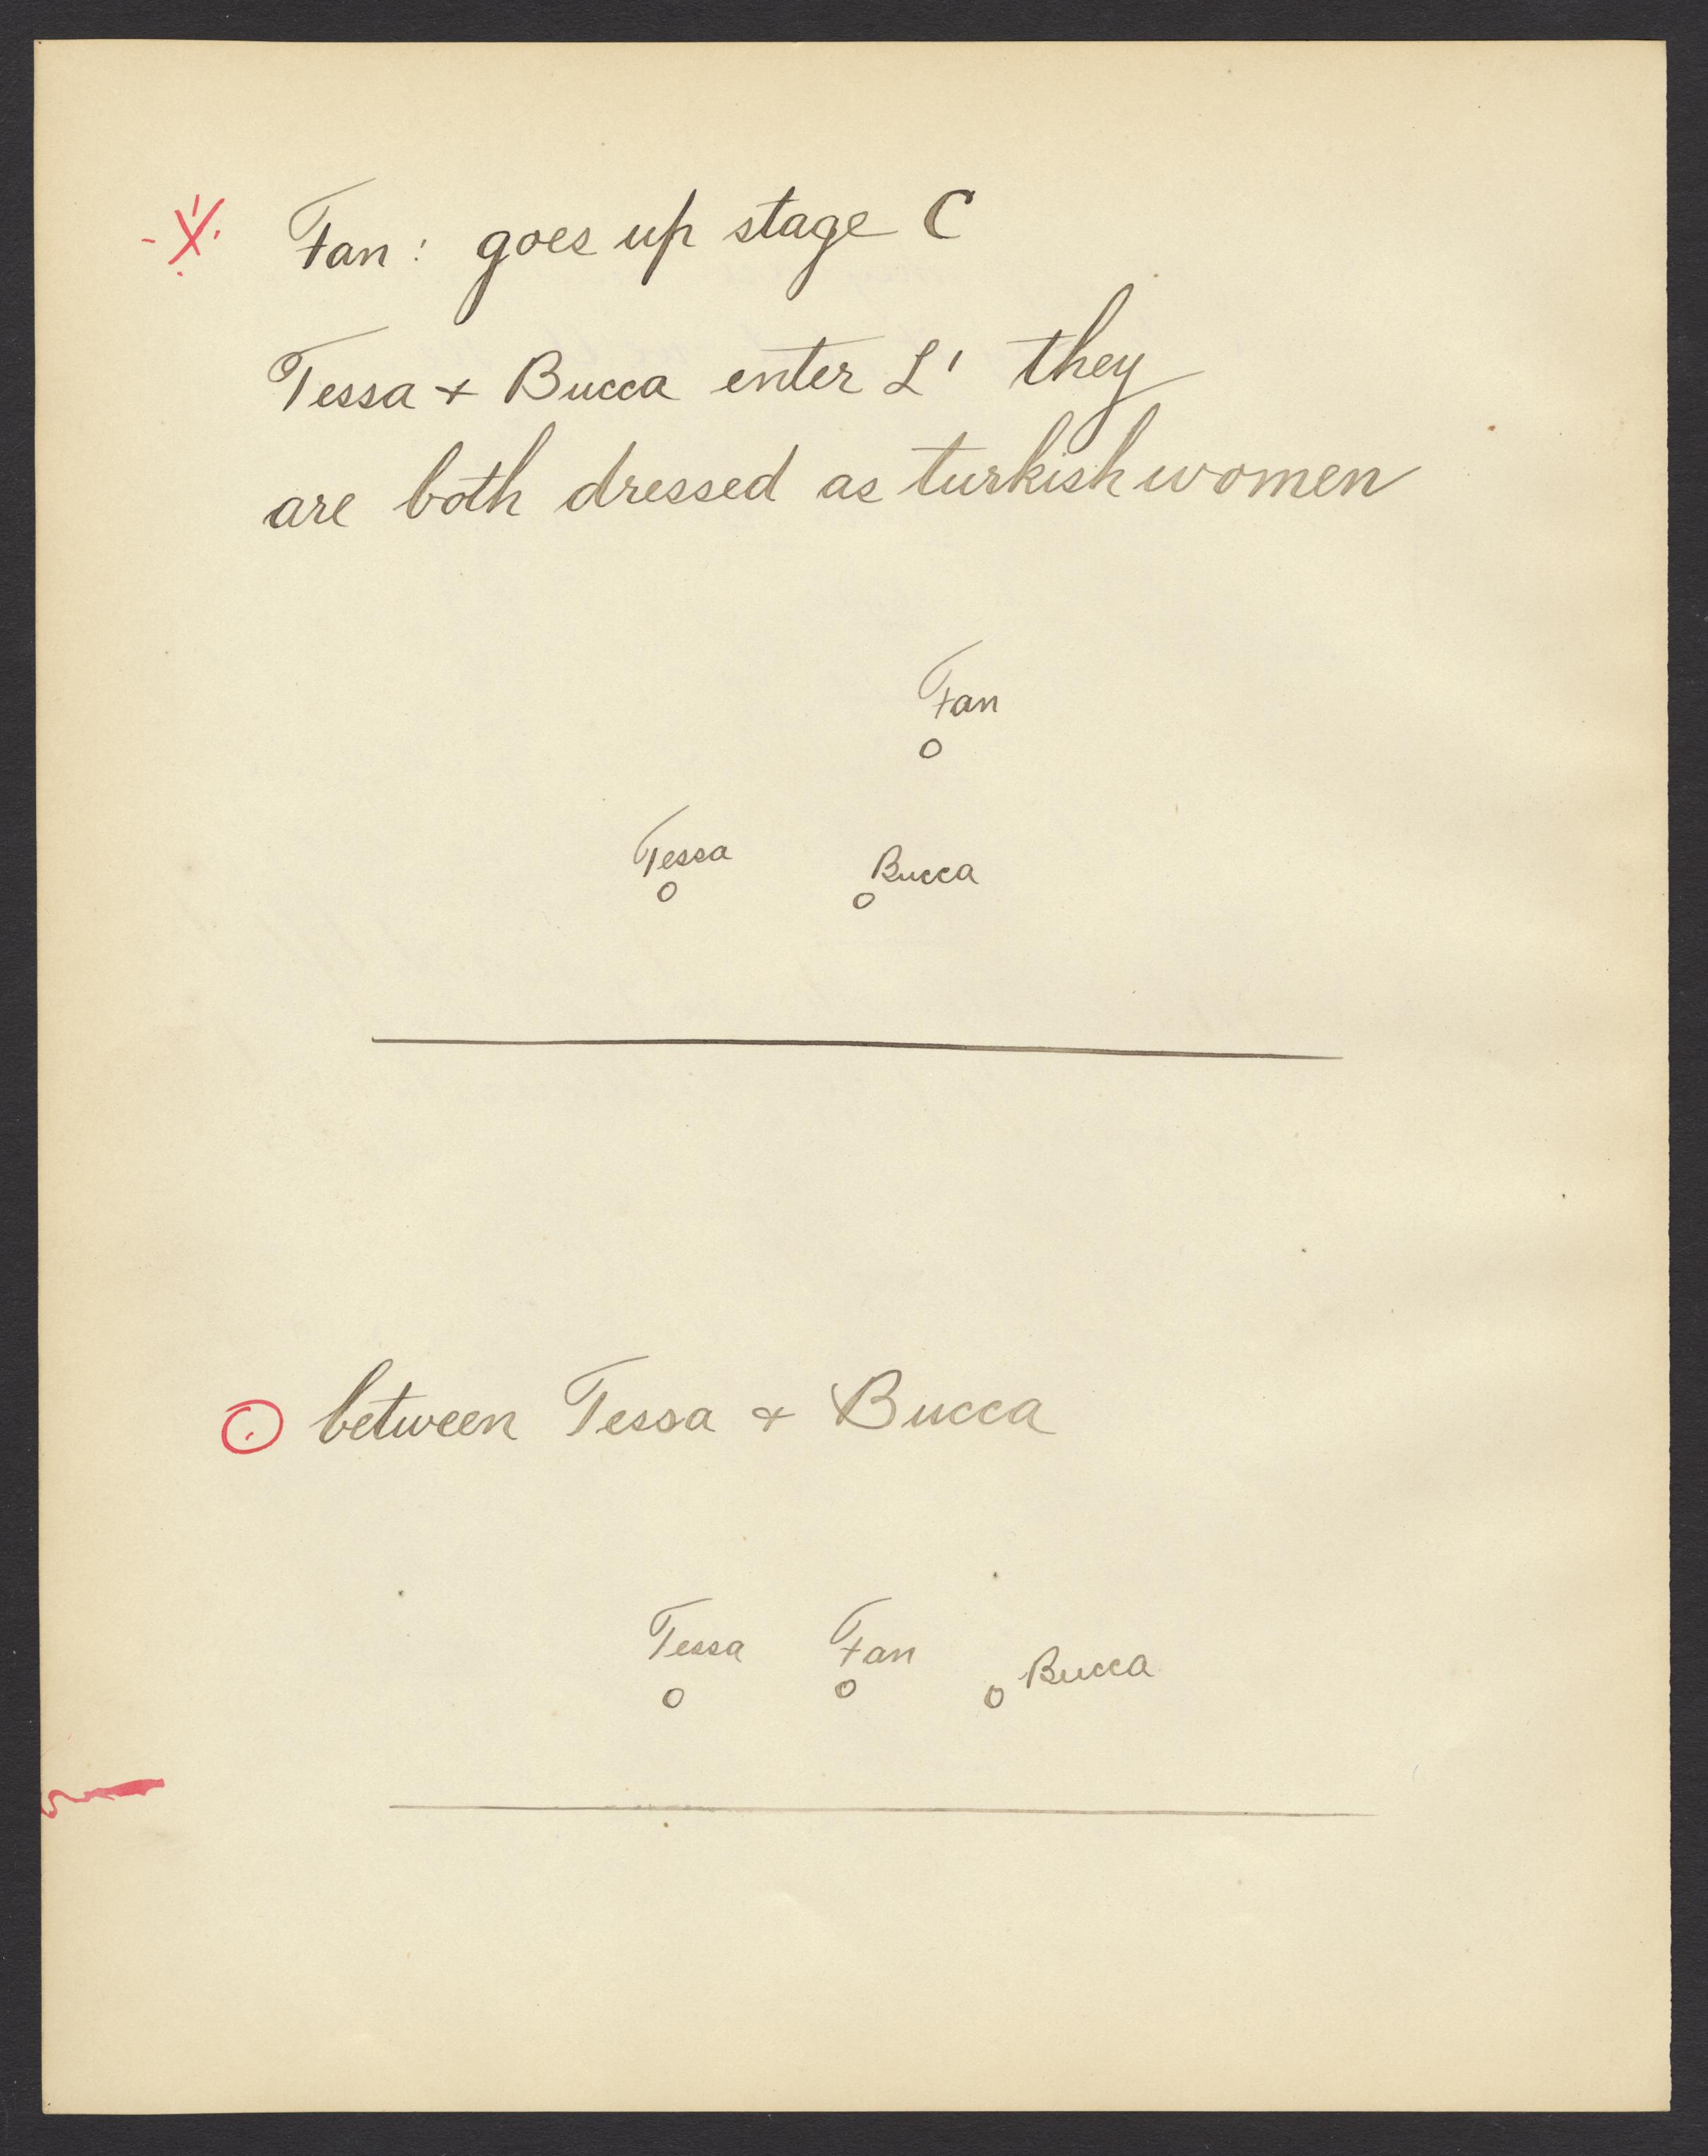 Fan: goes up stage C
Tessa + Bucca enter L' they
are both dressed as turkish women
Fan
Tessa
Bucca
between Tessa + Bucca
Tessa Fan Bucca